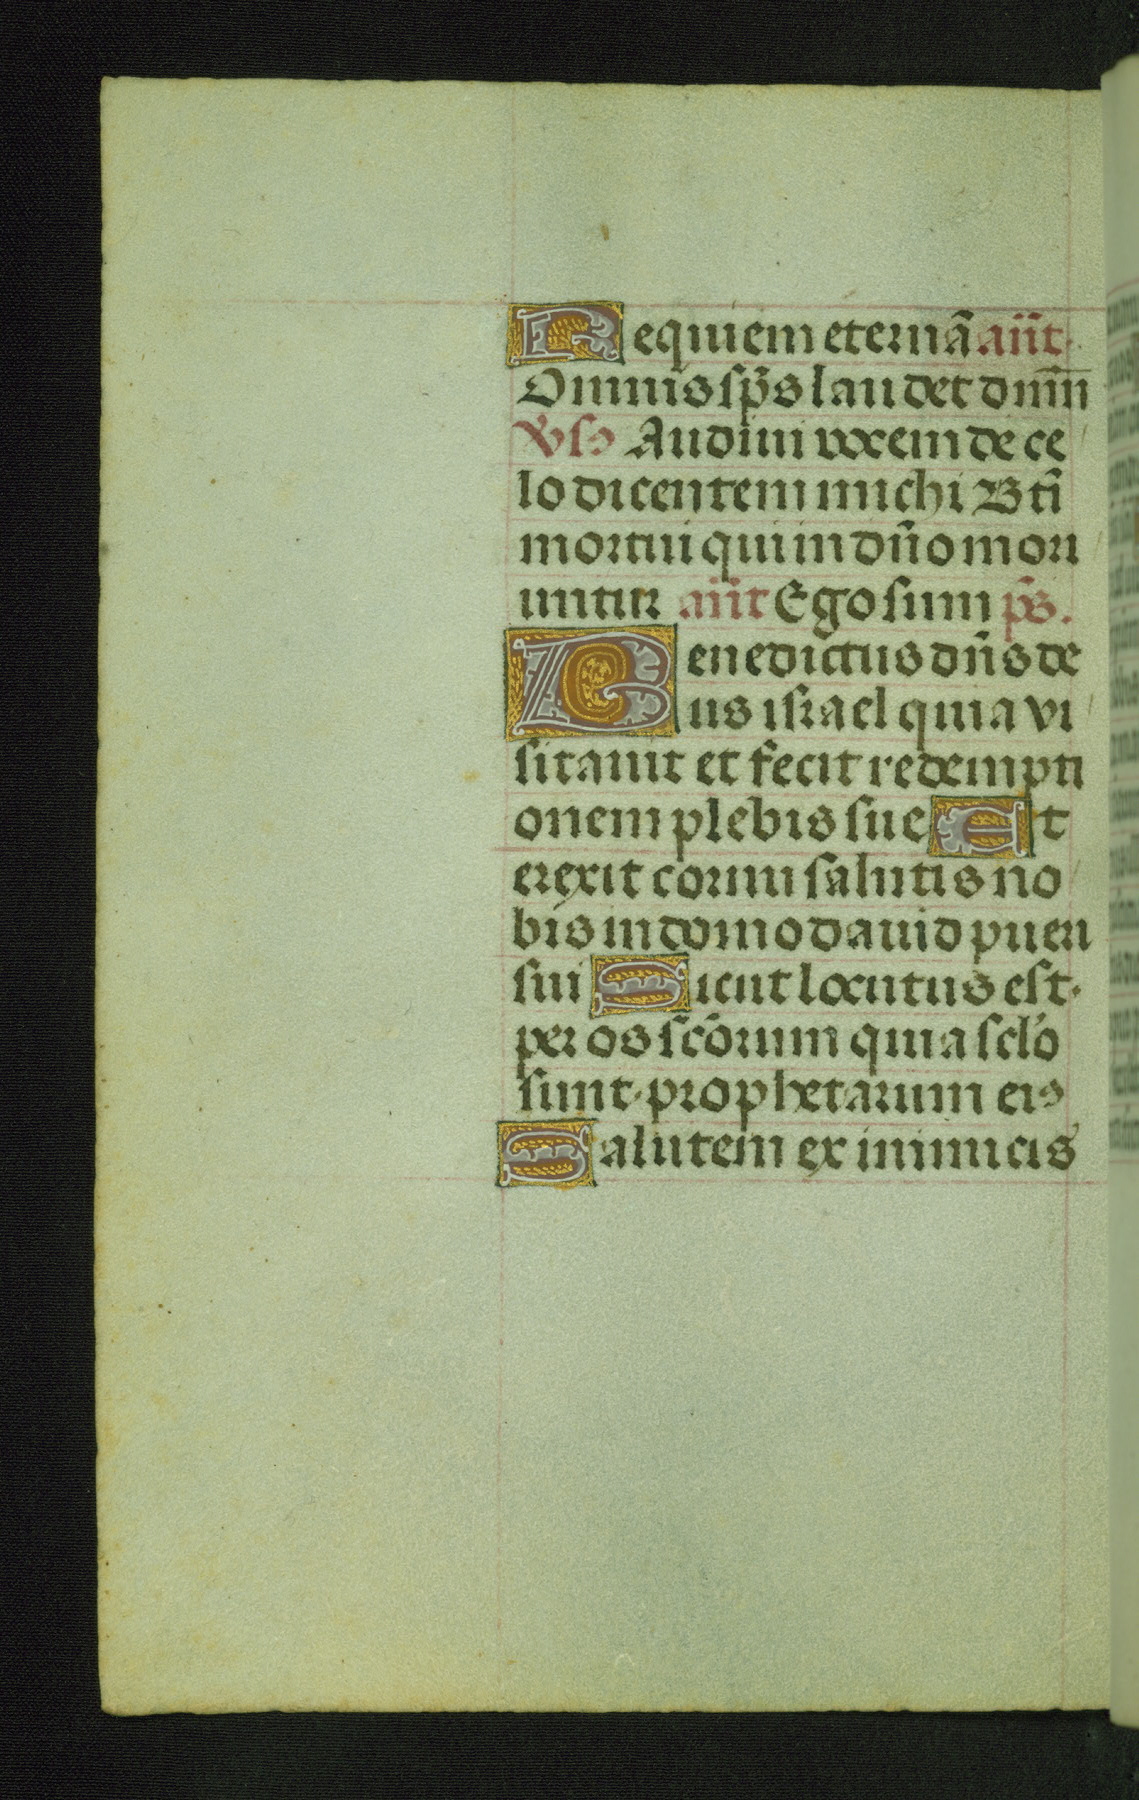 Requiem eternā añt.
Omnis sp̄s laudet dn̄m
Vs Audiui vocem de ce
lo dicentem michi Bti̅
mortui qui in dn̄o mori
untur añt Ego sum ps̄.
Benedictus dn̄s de
us israel quia vi
sitauit et fecit redempti
onem plebis sue Et
erexit cornu salutis no
bis in domo dauid pueri
sui Sicut locutus est.
per os sc̄orum qui a scl̄o
sunt. prophetarum eis
Salutem ex inimicis